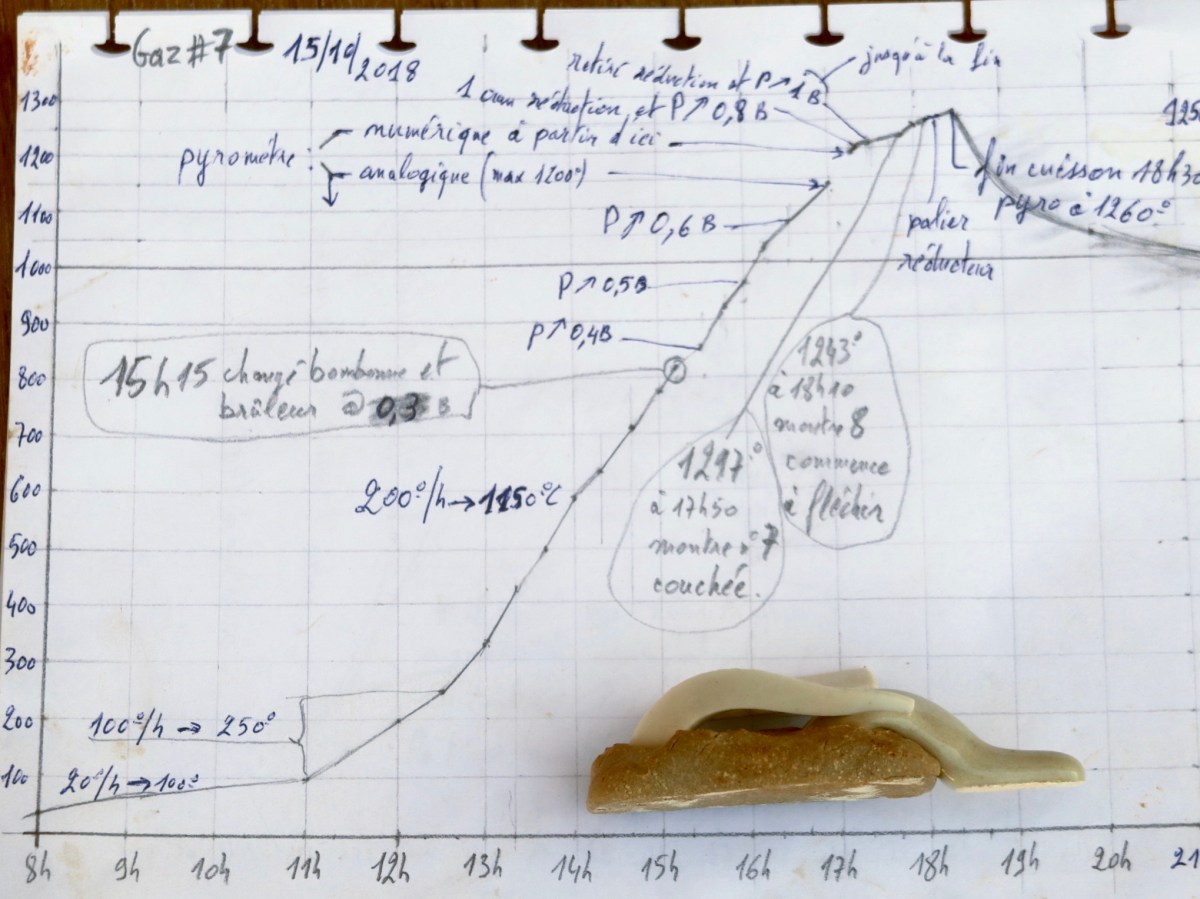 Gaz #7 15/10/2018
retiré réduction et P↗1B jusqu'à la fin
1 cm réduction, et P↗0,8B
1300
1250
pyromètre: numérique à partir d'ici
analogique (max 1200°)
1200
fin cuisson 18h30
pyro à 1260°
1100
P↗0,6B
palier
réducteur
1000
P↗0,5B
900
P↗0,4B
15h15 changé bombonne et
brûleur @ 0,3 B
800
1243°
à 18h10
montre 8
commence
à fléchir
700
1217°
à 17h50
montre n°7
couchée.
600
200°/h → 1150°C
500
400
300
200
100°/h → 250°
100
20°/h → 100°
8h 9h 10h 11h 12h 13h 14h 15h 16h 17h 18h 19h 20h 21